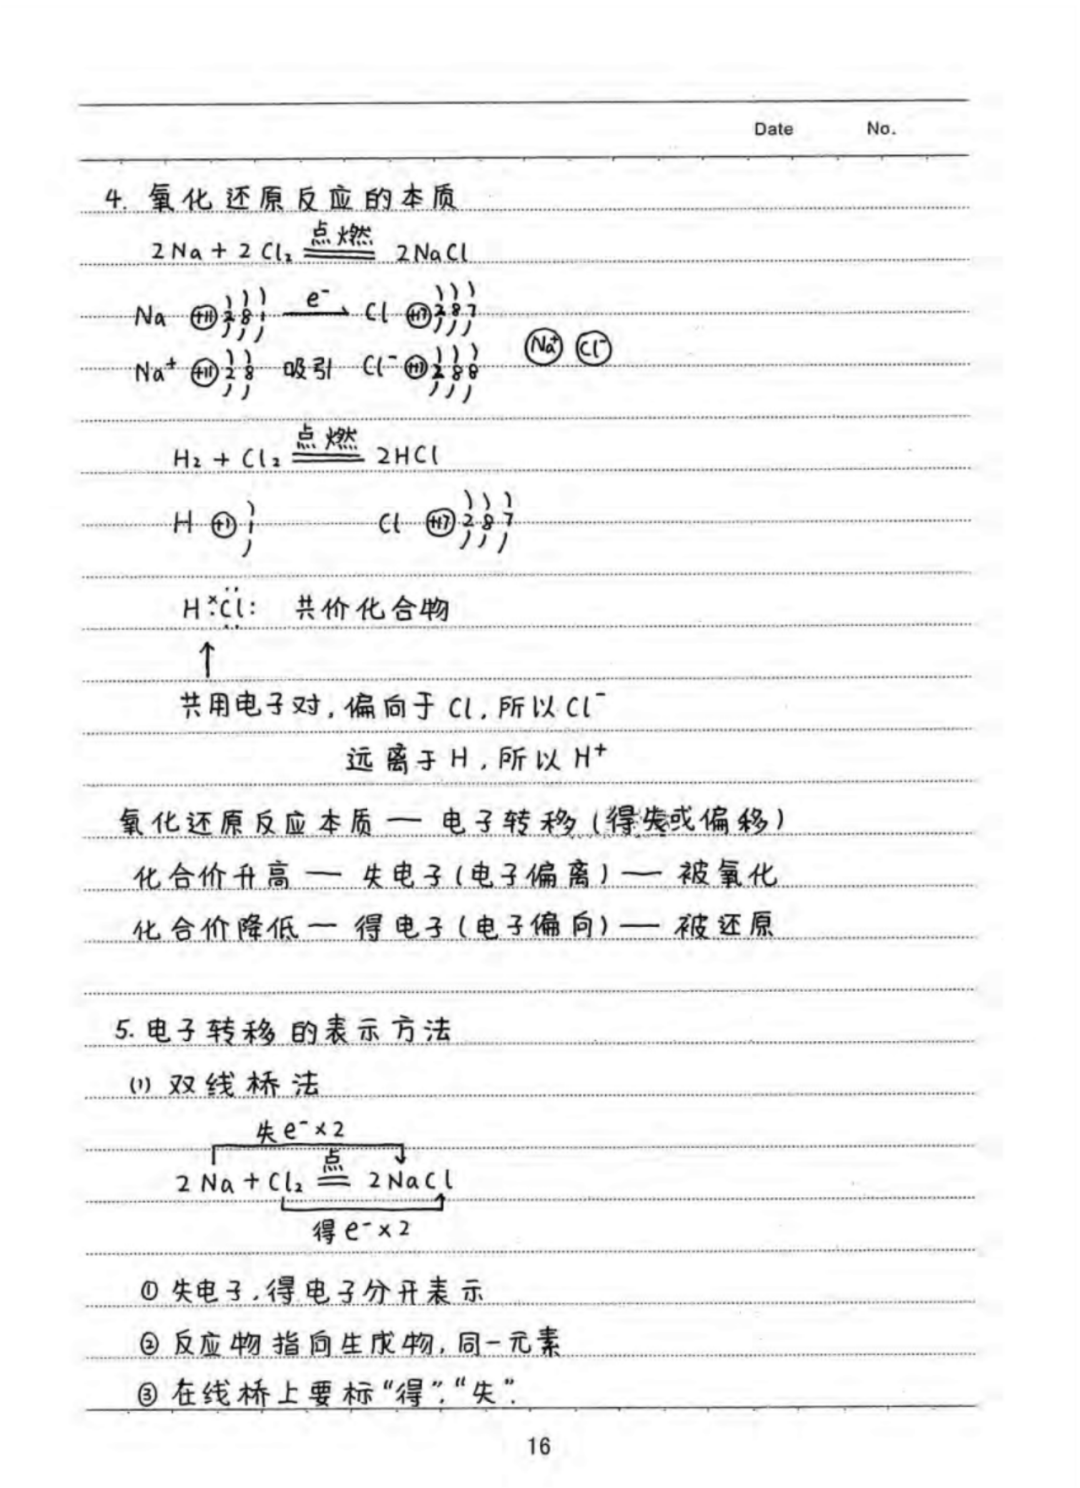 Date No.
4. 氧化还原反应的本质
2Na + 2Cl₂ 点燃 2NaCl
Na +11 2 8 1 e⁻ Cl +17 2 8 7
Na⁺ +11 2 8 吸引 Cl⁻ +17 2 8 8 Na⁺ Cl⁻
H₂ + Cl₂ 点燃 2HCl
H +1 1 Cl +17 2 8 7
H Cl 共价化合物
↑
共用电子对,偏向于Cl,所以Cl⁻
远离于H,所以H⁺
氧化还原反应本质 — 电子转移(得失或偏移)
化合价升高 — 失电子(电子偏离) — 被氧化
化合价降低 — 得电子(电子偏向) — 被还原
5. 电子转移的表示方法
(1) 双线桥法
失e⁻×2
2Na + Cl₂ 点 2NaCl
得e⁻×2
① 失电子,得电子分开表示
② 反应物指向生成物,同一元素
③ 在线桥上要标“得”,“失”.
16